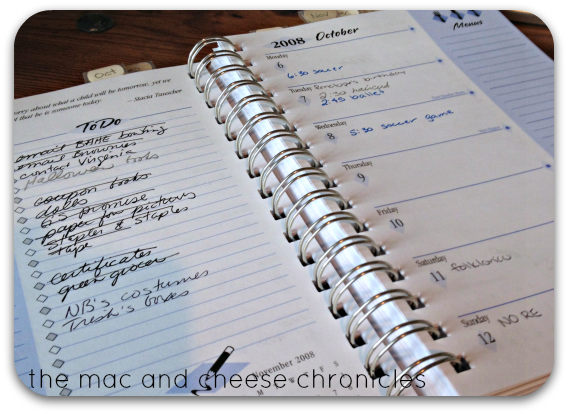 Oct
Nov
orry about what a child will be tomorrow, yet we
t that he is someone today.
– Stacia Tauscher
ToDo
email BAHE boating
email Brownies
contact Virginia
Halloween books
coupon books
dolls
G's promise
paper for pictures
stapler & staples
tape
certificates
green grocer
NB's costumes
Trish's boxes
November 2008
2008 October
Menus
Monday
6
6:30 soccer
Tuesday
7
birthday
2:30
2:45 ballet
Wednesday
8
5:30 soccer game
Thursday
9
Friday
10
Saturday
11
folklorico
Sunday
12
NO RE
the mac and cheese chronicles